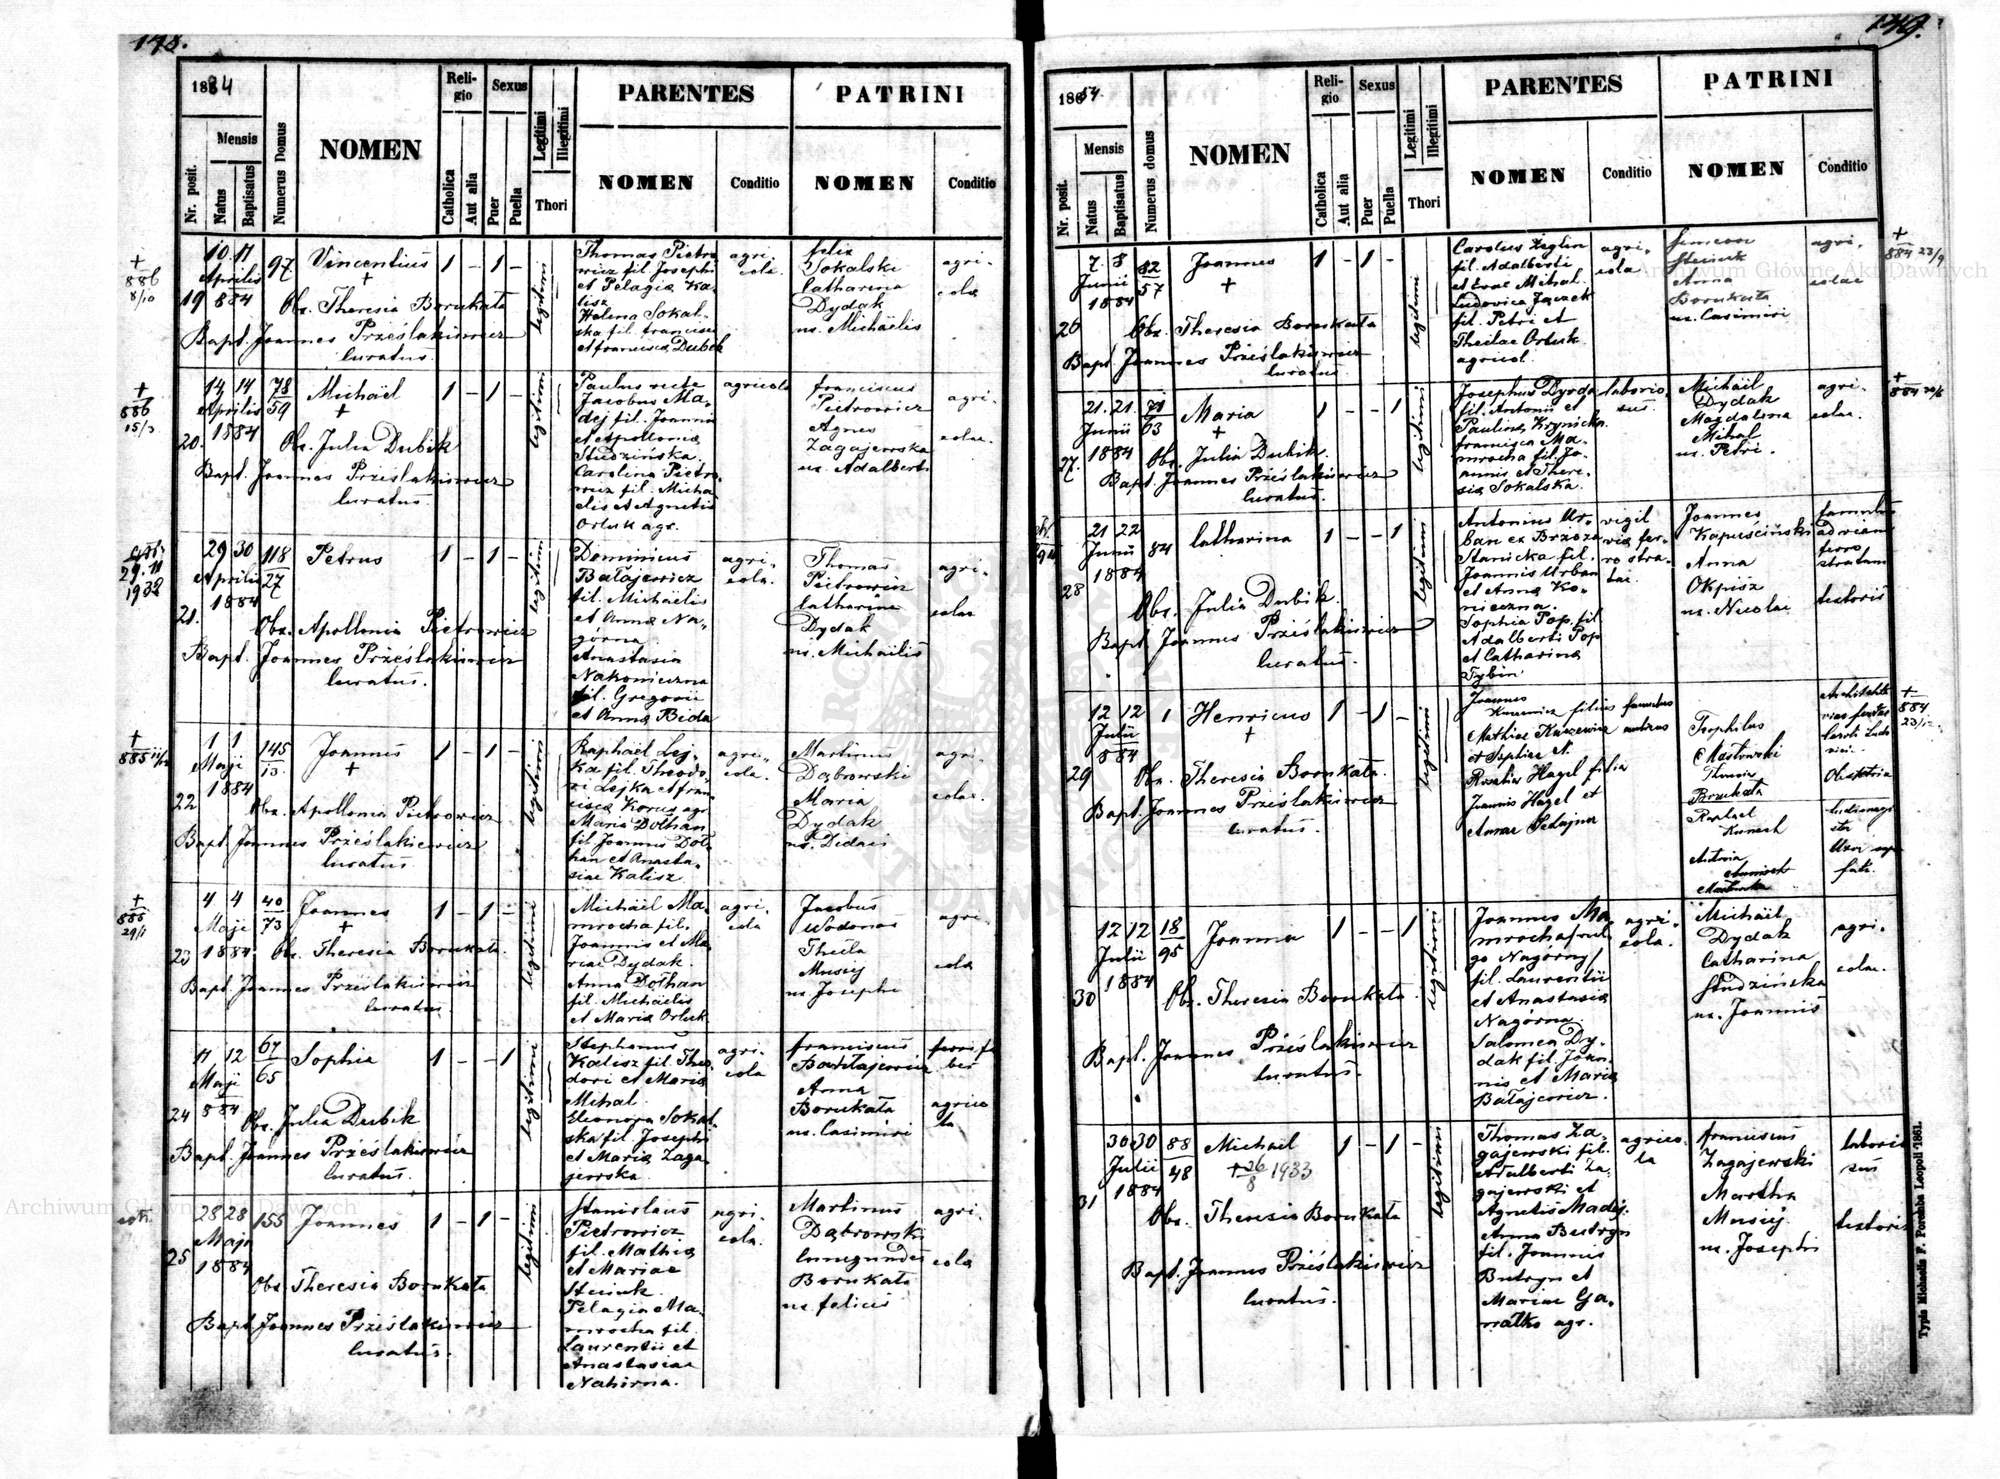 148.
1884
Mensis
Nr. posit.
Natus
Baptisatus
Numerus Domus
NOMEN
Religio
Catholica
Aut alia
Sexus
Puer
Puella
Legitimi
Illegitimi
Thori
PARENTES
NOMEN
Conditio
PATRINI
NOMEN
Conditio
+
886
8/10
19
10 11
Aprilis
884
97
Vincentius
+
1 - 1 -
legitimi
Obs. Theresia Borukata
Bapt. Joannes Prześlakiewicz
Curatus.
Thomas Pietro
wicz fil. Josephi
et Pelagia Ka-
lisz
Helena Sokal-
ska fil. Francisci
et Francisca Dubik
agri-
cola.
Felix
Sokalski
Catharina
Dydak
ux. Michaëlis
agri-
cola
+
886
15/3
20.
14 14
Aprilis
1884
78
59
Michaël
+
1 - 1 -
legitimi
Obs. Julia Dubik
Bapt. Joannes Prześlakiewicz
Curatus.
Paulus recte
Jacobus Ma-
dej fil. Joannis
et Apollonia
Studzińska.
Carolina Pietro-
wicz fil. Micha-
elis et Agnetis
Orluk agr.
agricola
Franciscus
Pietrowicz
Agnes
Zagajewska
ux. Adalberti
agri-
colae.
29.11
1938
21.
29 30
Aprilis
1884
118
27
Petrus
1 - 1 -
legitimi
Obs. Apollonia Pietrowicz
Bapt. Joannes Prześlakiewicz
Curatus.
Dominicus
Bałajewicz
fil. Michäelis
et Anna Na-
górna.
Anastasia
Nakonieczna
fil. Gregorii
et Anna Beda
agri-
cola.
Thomas
Pietrowicz
Catharina
Dydak
ux. Michaëlis
agri-
colae
+
885
22
1 1
Maji
1884
145
13.
Joannes
+
1 - 1 -
legitimi
Obs. Apollonia Pietrowicz
Bapt. Joannes Prześlakiewicz
Curatus.
Raphaël Lej-
ka fil. Theodo-
ri Lejka et Fran-
cisca Korus agr.
Maria Dołhan
fil. Joannis Doł-
han et Anasta-
siae Kalisz.
agri-
cola.
Martinus
Dąbrowski
Maria
Dydak
ux. Didaci
agri-
colae.
+
885
29/1
23
4 4
Maji
1884.
40
73
Joannes
+
1 - 1 -
legitimi
Obs. Theresia Borukata.
Bapt. Joannes Prześlakiewicz
Curatus.
Michaël Ma-
mrocha fil.
Joannis et Ma-
riae Dydak.
Anna Dołhan
fil. Michäelis
et Maria Orluk
agri-
cola
Jacobus
Wodonos
Thecla
Musiej
ux. Josephi
agri-
cola
24
11 12
Maji
884
67
65
Sophia
1 - - 1
legitimi
Obs. Julia Dubik
Bapt. Joannes Prześlakiewicz
Curatus.
Stephanus
Kalisz fil. Theo-
dori et Maria
Mihal.
Eleonora Sokal-
ska fil. Josephi
et Maria Zaga-
jewska.
agri-
cola
Franciscus
Bałtajewicz
Anna
Borukata
ux. Casimiri
agrico
la
25
28 28
Maji
1884
155
Joannes
1 - 1 -
legitimi
Obs. Theresia Borukata
Bapt. Joannes Prześlakiewicz
Curatus.
Stanislaus
Pietrowicz
fil. Mathia
et Mariae
Steciuk.
Pelagia Ma-
mrocha fil.
Laurentii et
Anastasiae
Nahirna.
agri-
cola.
Martinus
Dąbrowski
Cunegundes
Borukata
ux. Felicis
agri-
cola
149.
1884
Mensis
Nr. posit.
Natus
Baptisatus
Numerus domus
NOMEN
Religio
Catholica
Aut alia
Sexus
Puer
Puella
Legitimi
Illegitimi
Thori
PARENTES
NOMEN
Conditio
PATRINI
NOMEN
Conditio
26
7. 8
Junii
1884
82
57
Joannes
+
1 - 1 -
legitimi
Obs. Theresia Borukata
Bapt. Joannes Prześlakiewicz
Curatus.
Carolus Żeglin
fil. Adalberti
et Evae Mihal.
Ludovica Jaczek
fil. Petri et
Theclae Orluk
agricol.
agri-
cola
Simeon
Steciuk
Anna
Borukata
ux. Casimiri
agri-
colae
+
884 23/9
27.
21. 21.
Junii
1884
71
63
Maria
+
1 - - 1
legitimi
Obs. Julia Dubik.
Bapt. Joannes Prześlakiewicz
Curatus.
Josephus Dyrda
fil. Antonii et
Paulina Krynicka.
Francisca Ma-
mrocha fil. Jo-
annis et There-
sia Sokalska.
laborio-
sus.
Michaël
Dydak
Magdalena
Mihal
ux. Petri.
agri-
colae.
+
884
28
21 22
Junii
1884
84
Catharina
1 - - 1
legitimi
Obs. Julia Dubik.
Bapt. Joannes Prześlakiewicz
Curatus.
Antonius Ur-
ban ex Brzoza
Stanicka fil.
Joannis Urban
et Anna Ko-
nieczna.
Sophia Pop. fil.
Adalberti Pop
et Catharina
Tybin
vigil
via fer-
ro stra-
tae.
Joannes
Kapuściński
Anna
Okpisz
ux. Nicolai
famulus
ad viam
ferro
stratam
textoris
29
12 12
Julii
884
1
Henricus
+
1 - 1 -
legitimi
Obs. Theresia Borukata.
Bapt. Joannes Prześlakiewicz
Curatus.
Joannes
Kurzewicz filius
Mathiae Kurzewicz
et Sophiae et
Rosalia Hagel filia
Joannis Hagel et
Annae Sedajna
famulus
Theophilus
Masłowski
Borukata
Raphael
Obstetrix
+
884
23/12.
30
12 12
Julii
1884
18
95
Joanna
1 - - 1
legitimi
Obs. Theresia Borukata.
Bapt. Joannes Prześlakiewicz
Curatus.
Joannes Ma-
mrocha
go Nagórny
fil. Laurentii
et Anastasia
Nagórna.
Salomea Dy-
dak fil. Joan-
nis et Maria
Bałajewicz.
agri-
cola.
Michaël
Dydak
Catharina
Studzińska
ux. Joannis
agri-
colae.
31
30 30
Julii
1884
88
48
Michaël
+ 26/8 1933
1 - 1 -
legitimi
Obs. Theresia Borukata
Bapt. Joannes Prześlakiewicz
Curatus.
Thomas Za-
gajewski fil.
Adalberti Za-
gajewski et
Agnetis Madej.
Anna Butryn
fil. Joannis
Butryn et
Mariae Ga-
wałko agr.
agrico-
la
Franciscus
Zagajewski
Martha
Musiej
ux. Josephi
laborio
sus
textoris
Typis Michaelis F. Poremba Leopoli 1861.
Archiwum Główne Akt Dawnych
Archiwum Główne Akt Dawnych